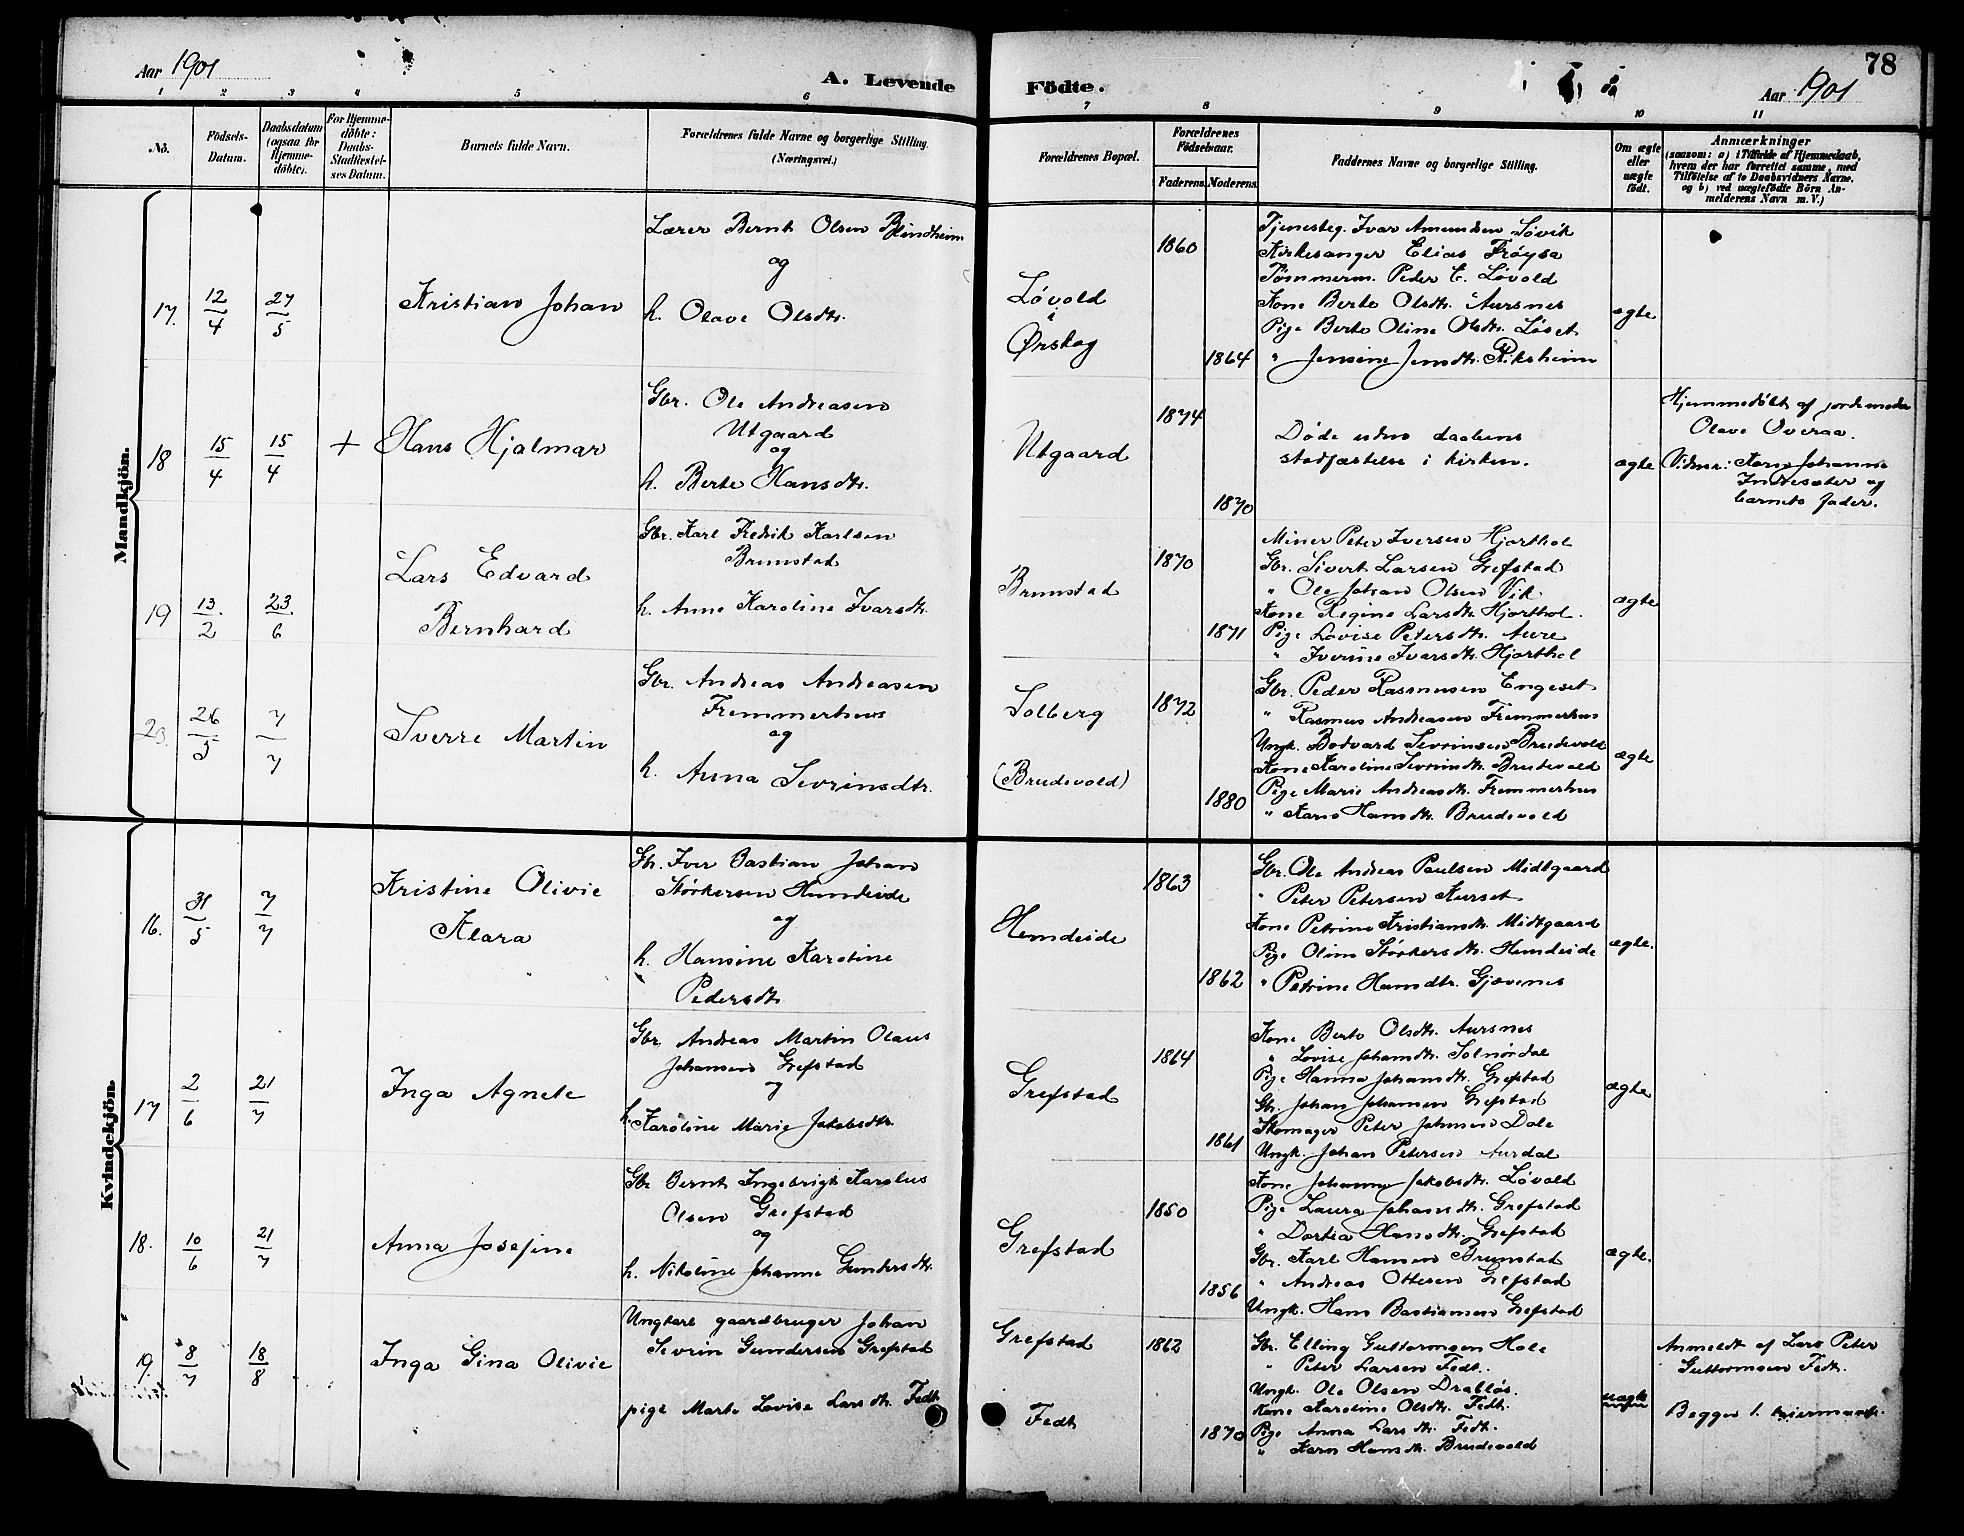 Aar 1901
A. Levende
Födte.
Aar 1901
78
1 2 3 4 5 6 7 8 9 10 11
No.
Födsels-
Datum.
Daabsdatum
(ogsaa for
Hjemme-
döbte).
For Hjemme-
döbte:
Daabs-
Stadfæstel-
ses Datum.
Barnets fulde Navn.
Forældrenes fulde Navne og borgerlige Stilling.
(Næringsvei.)
Forældrenes Bopæl.
Forældrenes
Födselsaar.
Faderens.
Moderens.
Faddernes Navne og borgerlige Stilling.
Om ægte
eller
uægte
födt.
Anmærkninger
(saasom: a) i Tilfælde af Hjemmedaab,
hvem der har forrettet samme, med
Tilföielse af to Daabsvidners Navne.
og b) ved uægtefödte Börn An-
melderens Navn m. V.)
Mandkjön.
17.
12/4
27/5
Kristian Johan
Lærer Bernt Olsen Blindheim
og
h. Olave Olsdtr.
Løvold
i
Ørskog
1860
1864
Tjenesteg. Ivar Amundsen Løvik
Kirkesanger Elias Frøysa
Tømmerm. Peder E. Løvold
Kone Berte Olsdtr. Aursnes
Pige Berte Oline Olsdtr. Løset
" Jensine Jensdtr. Riksheim
ægte
18
15/4
15/4
+
Hans Hjalmar
Gbr. Ole Andreasen
Utgaard
og
h. Berte Hansdtr.
Utgaard
1874
1870
Døde uden daabens
stadfæstelse i kirken.
ægte
Hjemmedøbt af jordemoder
Olave Overaa.
Vidner: Karn Johanne
Indresæter og
barnets fader.
19
13/2
23/6
Lars Edvard
Bernhard
Gbr. Karl Fredrik Karlsen
Brunstad
h. Anne Karoline Ivarsdtr.
Brunstad
1870
1871
Miner Peter Iversen Hjorthol
Gbr. Sivert Larsen Grefstad
" Ole Johan Olsen Vik
Kone Regine Larsdtr. Hjorthol.
Pige Lovise Petersdtr. Aure
" Iverine Ivarsdtr. Hjorthol
ægte
20.
26/5
7/7
Sverre Martin
Gbr. Andreas Andreasen
Fremmerhus
og
h. Anna Sevrinsdtr.
Solberg
(Brudevold)
1872
1880
Gbr. Peder Rasmusen Engeset
" Rasmus Andreasen Fremmerhus
Ungk. Bodvard Sevrinsen Brudevold
Kone Karoline Sevrinsdtr. Brudevold
Pige Marie Andreasdtr. Fremmerhus
" Karn Hansdtr. Brudevold
ægte
Kvindekjön.
16.
31/5
7/7
Kristine Olivie
Klara
Gbr. Iver Bastian Johan
Størkersen Hundeide
og
h. Hansine Karoline
Pedersdtr.
Hundeide
1863
1862
Gbr. Ole Andreas Paulsen Midtgaard
" Peter Petersen Kurset
Kone Petrine Kristiansdtr. Midtgaard
Pige Oline Størkersdtr. Hundeide
" Petrine Hansdtr. Gjævenes
ægte.
17
2/6
21/7
Inga Agnete
Gbr. Andreas Martin Olaus
Johansen Grefstad
og
h. Karoline Marie Jakobsdtr.
Grefstad
1864
1861
Kone Berte Olsdtr. Aursnes
" Lovise Johansdtr. Solnørdal
Pige Hanna Johansdtr. Grefstad
Gbr. Johan Johansen Grefstad
Skomager Peter Johnsen Dale
Ungk. Johan Petersen Aurdal
ægte
18.
10/6
21/7
Anna Josefine
Gbr Bernt Ingebrigt Karolus
Olsen Grefstad
og
h. Nikoline Johanne Gundersdtr.
Grefstad
1850
1856
Kone Johanne Jakobsdtr. Løvold
Pige Laura Johansdtr. Grefstad
" Dortea Hansdtr. Grefstad
Gbr. Karl Hansen Brunstad
" Andreas Ottesen Grefstad
Ungk. Hans Bastiansen Grefstad
ægte.
19.
8/7
18/8
Inga Gina Olivie
Ungkarl gaardbruger Johan
Sevrin Gundersen Grefstad
pige Marte Lovise Larsdtr. Fedt
Grefstad
Fedt
1862
1870
Gbr. Elling Guttormsen Hole
" Peter Larsen Fedt.
Ungk. Ole Olsen Drabløs.
Kone Karoline Olsdtr. Fedt.
Pige Anna Larsdtr. Fedt.
" Karn Hansdtr. Brudevold
uægte
Anmeldt af Lars Peter
Guttormsen Fedt.
Begges 1. leiermaal.